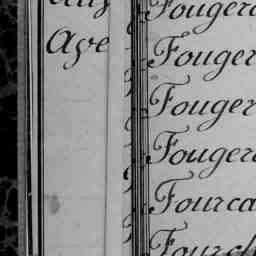 Aye
Fouger
Fouger
Fouger
Fouger
Fourca
Fourch